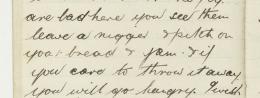 are bad here you see them
leave a nigger & pitch on
your bread & jam. & if
you care to throw it away
you will go hungry. I wish